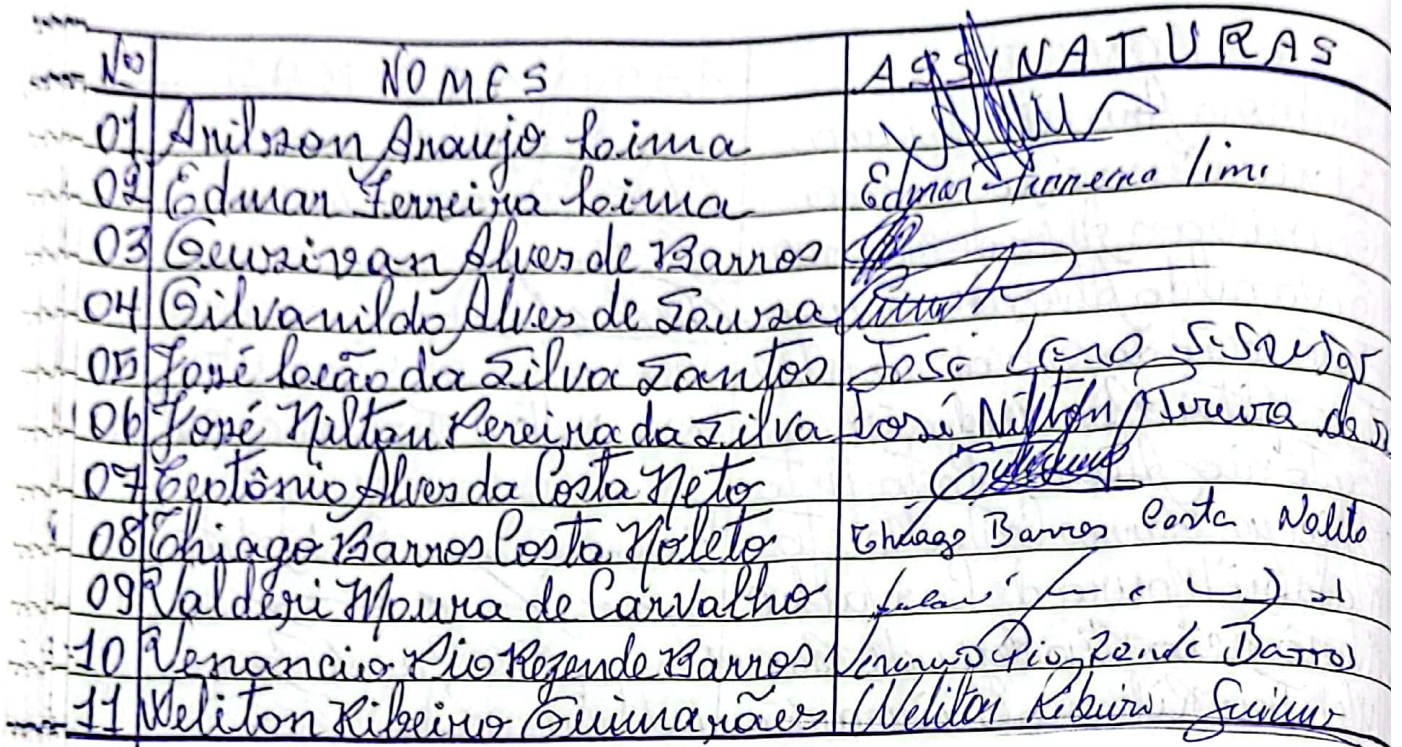 Nº NOMES ASSINATURAS
01 Anilson Araujo Lima
02 Edmar Ferreira Lima Edmar Ferreira Lima
03 Geusivan Alves de Barros
04 Gilvanildo Alves de Souza
05 José Leão da Silva Santos José
06 José Nilton Pereira da Silva José Nilton Pereira da S
07 Teotônio Alves da Costa Neto
08 Thiago Barros Costa Noleto Thiago Barros Costa Noleto
09 Valderi Moura de Carvalho
10 Venancio Pio Rezende Barros Pio Barros
11 Weliton Ribeiro Guimarães Weliton Ribeiro